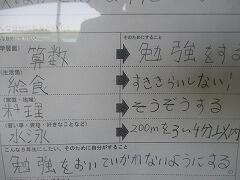 そのためにすること
(学習面)
算数 勉強をする
(生活面)
給食 すききらいしない!
(家庭・地域)
料理 そうぞうする
(習い事・資格・好きなことなど)
水泳 200mを3い4分以内
こんな5年生にしたい、そのために自分ができること
勉強をおいていかれないようにする。